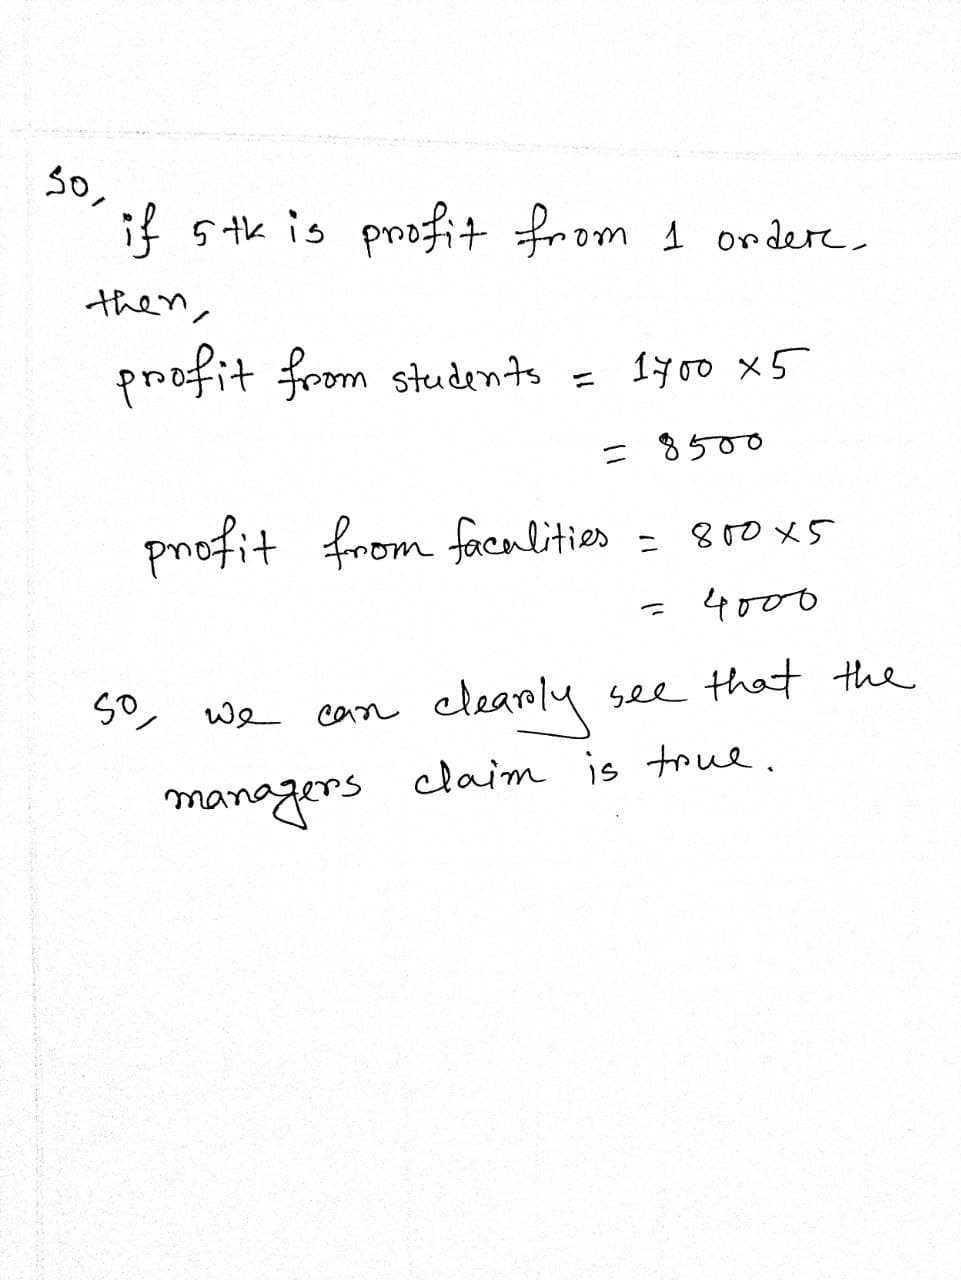 So,
if 5 tk is profit from 1 order,
then,
profit from students = 1700 × 5
= 8500
profit from faculities = 800 × 5
= 4000
so, we can clearly see that the
managers claim is true.